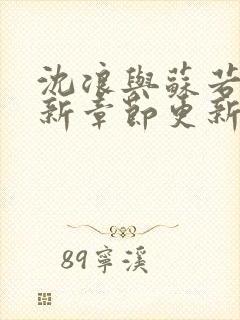 沈浪與蘇若
新章節更新
89寧溪